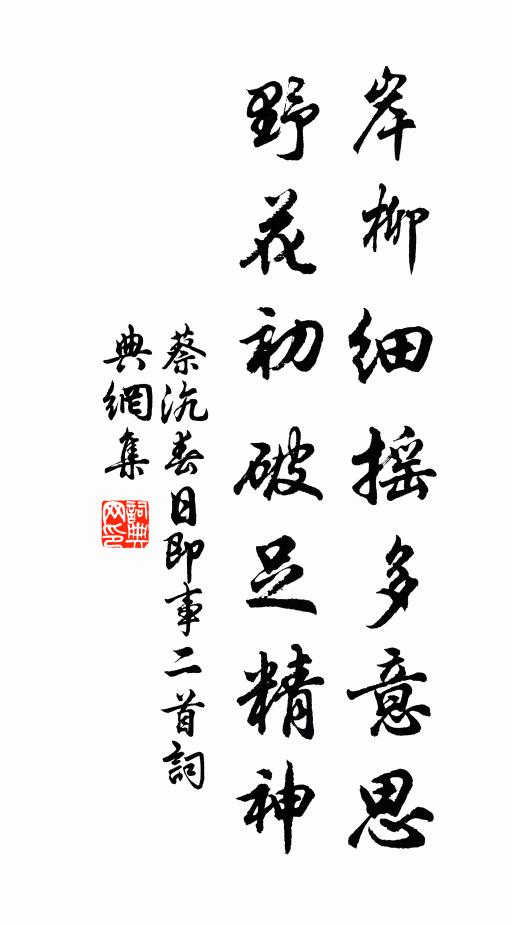 岸柳細摇多意思
野花初破足精神
蔡沈春日即事二首詞
典網集
詞典
网印